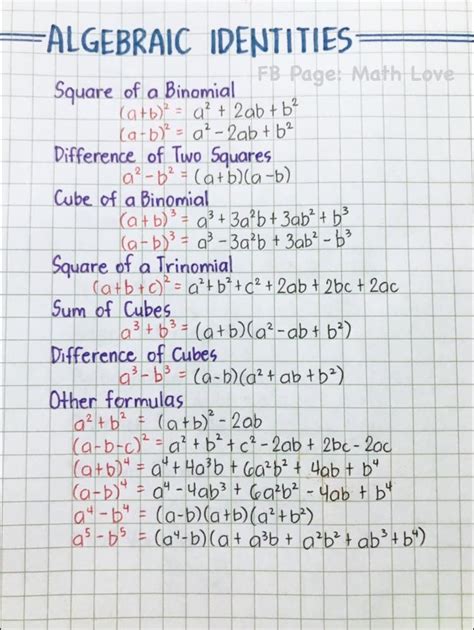 ALGEBRAIC IDENTITIES
FB Page: Math Love
Square of a Binomial
(a+b)² = a² + 2ab + b²
(a-b)² = a² - 2ab + b²
Difference of Two Squares
a² - b² = (a+b)(a-b)
Cube of a Binomial
(a+b)³ = a³ + 3a²b + 3ab² + b³
(a-b)³ = a³ - 3a²b + 3ab² - b³
Square of a Trinomial
(a+b+c)² = a² + b² + c² + 2ab + 2bc + 2ac
Sum of Cubes
a³ + b³ = (a+b)(a² - ab + b²)
Difference of Cubes
a³ - b³ = (a-b)(a² + ab + b²)
Other formulas
a² + b² = (a+b)² - 2ab
(a-b-c)² = a² + b² + c² - 2ab + 2bc - 2ac
(a+b)⁴ = a⁴ + 4a³b + 6a²b² + 4ab + b⁴
(a-b)⁴ = a⁴ - 4ab³ + 6a²b² - 4ab + b⁴
a⁴ - b⁴ = (a-b)(a+b)(a² + b²)
a⁵ - b⁵ = (a⁴-b)(a + a³b + a²b² + ab³ + b⁴)